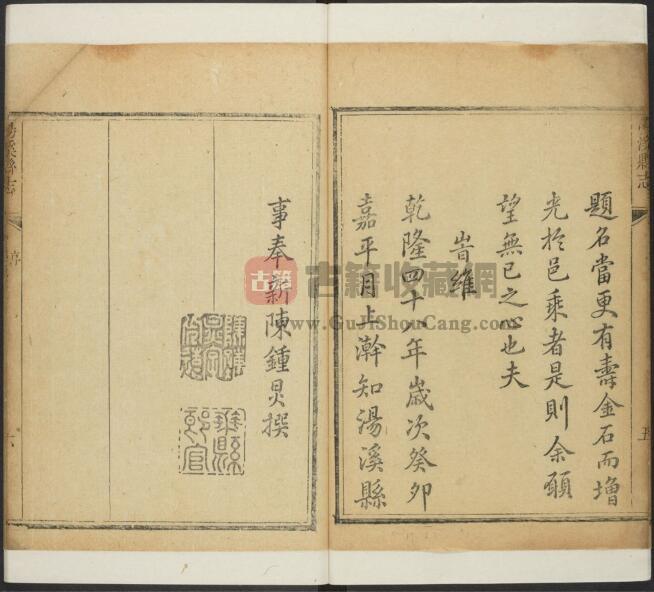 題名當更有壽金石而增
光於邑乘者是則余願
望無已之心也夫
旹維
乾隆四十八年歲次癸卯
嘉平月上澣知湯溪縣
事奉新陳鍾炅撰
湯溪縣志
五
湯溪縣志
序
六
古籍
古籍收藏网
www.GuJiShouCang.com